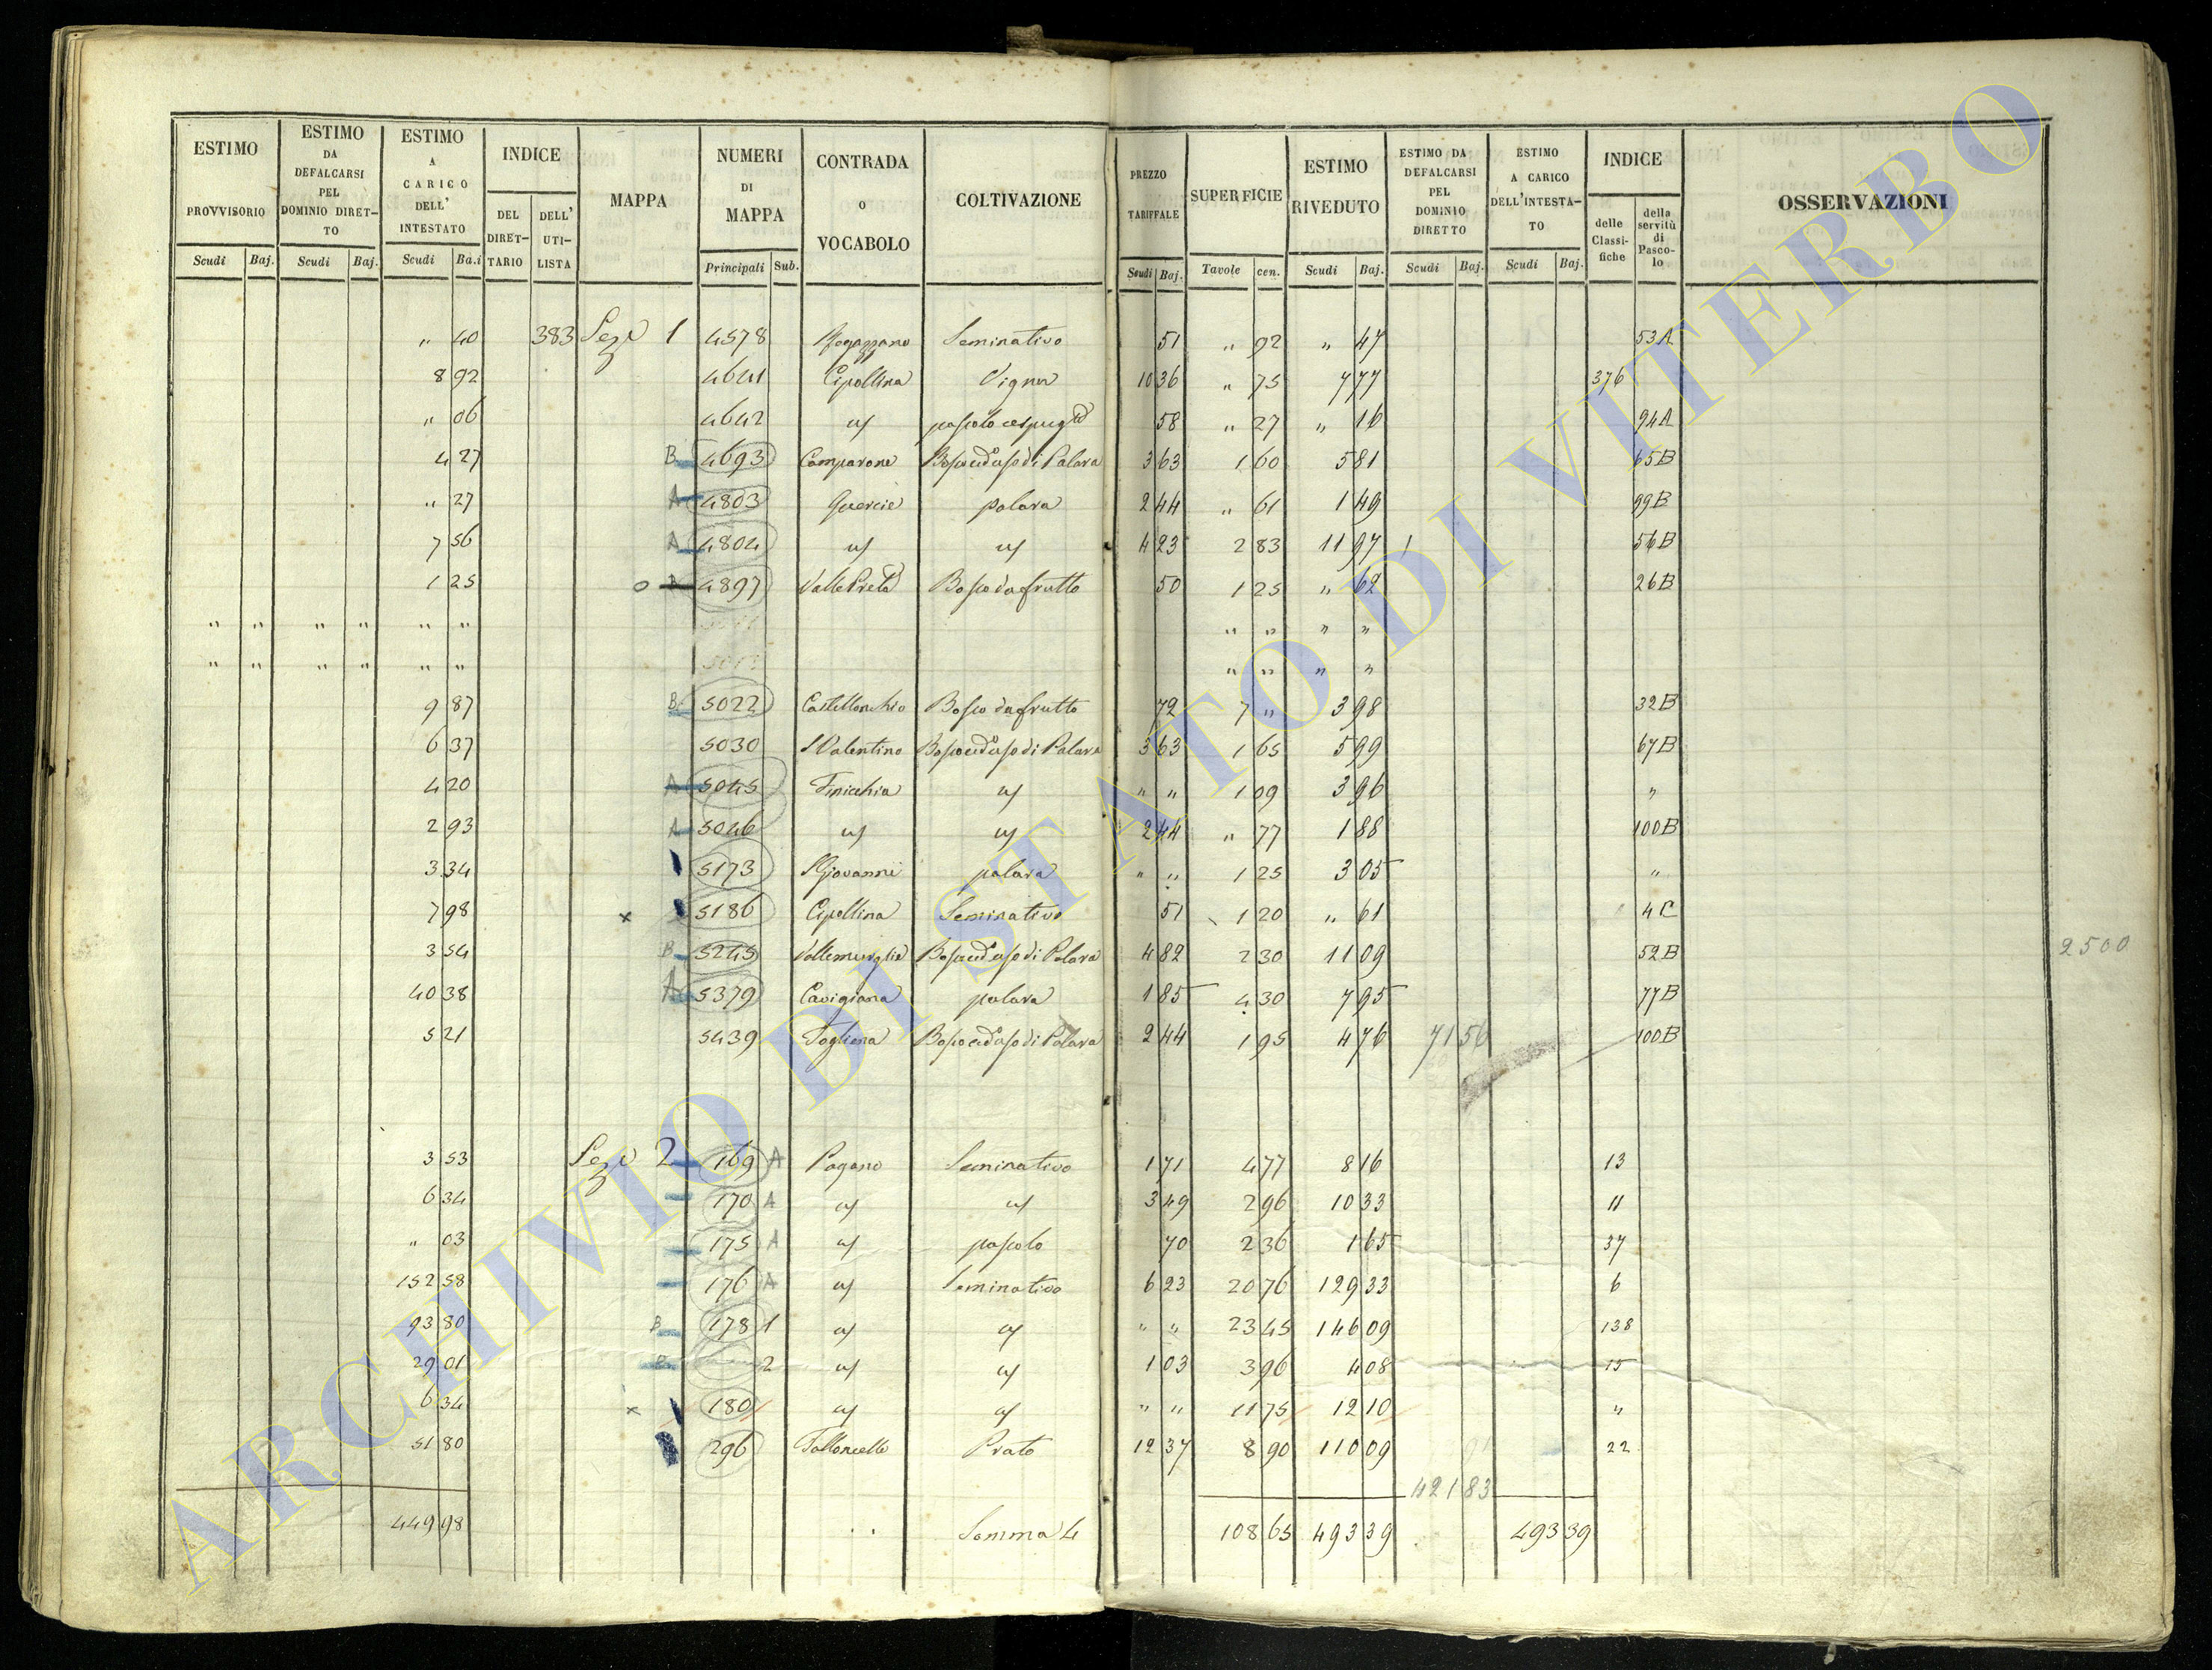 ESTIMO PROVVISORIO Scudi Baj.
ESTIMO DA DEFALCARSI PEL DOMINIO DIRETTO Scudi Baj.
ESTIMO A CARICO DELL' INTESTATO Scudi Ba.i
INDICE DEL DIRETTARIO DELL' UTILISTA
MAPPA
NUMERI DI MAPPA Principali Sub.
CONTRADA O VOCABOLO
COLTIVAZIONE
PREZZO TARIFFALE Scudi Baj.
SUPERFICIE Tavole cen.
ESTIMO RIVEDUTO Scudi Baj.
ESTIMO DA DEFALCARSI PEL DOMINIO DIRETTO Scudi Baj.
ESTIMO A CARICO DELL'INTESTATO Scudi Baj.
INDICE delle Classifiche della servitù di Pascolo
OSSERVAZIONI
" 40 383 Sez.e 1 4578 Seminativo 51 " 92 " 47 53A
8 92 4641 Cipollina Vigna 10 36 " 75 7 77 376
" 06 4642 " pascolo cespugl.o 58 " 27 " 16 94A
4 27 B 4693 Camparone Bosco ced. ad uso di Palara 3 63 1 60 5 81 65B
" 27 A 4803 Quercie palara 2 44 " 61 1 49 99B
7 56 A 4804 " " 4 23 2 83 11 97 56B
1 25 o 4897 Valle Preta Bosco da frutto 50 1 25 " 62 26B
" " " " " " " " " "
" " " " " " " " " "
9 87 B 5022 Castellonchio Bosco da frutto 72 7 " 3 98 32B
6 37 5030 S Valentino Bosco ced. ad uso di Palara 3 63 1 65 5 99 67B
4 20 A 5045 Finicchia " " " 1 09 3 96 "
2 93 A 5046 " " 2 44 " 77 1 88 100B
3 34 5173 S Giovanni palara " " 1 25 3 05 "
7 98 x 5186 Cipollina Seminativo 51 1 20 " 61 4C
3 54 B 5245 Bosco ced. ad uso di Palara 4 82 2 30 11 09 52B
2500
40 38 A 5379 Cavigiana palara 1 85 4 30 7 95 77B
5 21 5439 Fogliana Bosco ced. ad uso di Palara 2 44 1 95 4 76 71 56 100B
3 53 Sez.e 2 169 A Pagano Seminativo 1 71 4 77 8 16 13
6 34 170 A " " 3 49 2 96 10 33 11
" 03 175 A " pascolo 70 2 36 1 65 37
152 58 176 A " Seminativo 6 23 20 76 129 33 6
93 80 B 178 1 " " " " 23 45 146 09 138
29 01 B 2 " " 1 03 3 96 4 08 15
6 34 x 180 " " " " 11 75 12 10 "
51 80 296 Falloncello Prato 12 37 8 90 110 09 22
421 83
449 98 Somma 4 108 65 493 39 493 39
ARCHIVIO DI STATO DI VITERBO